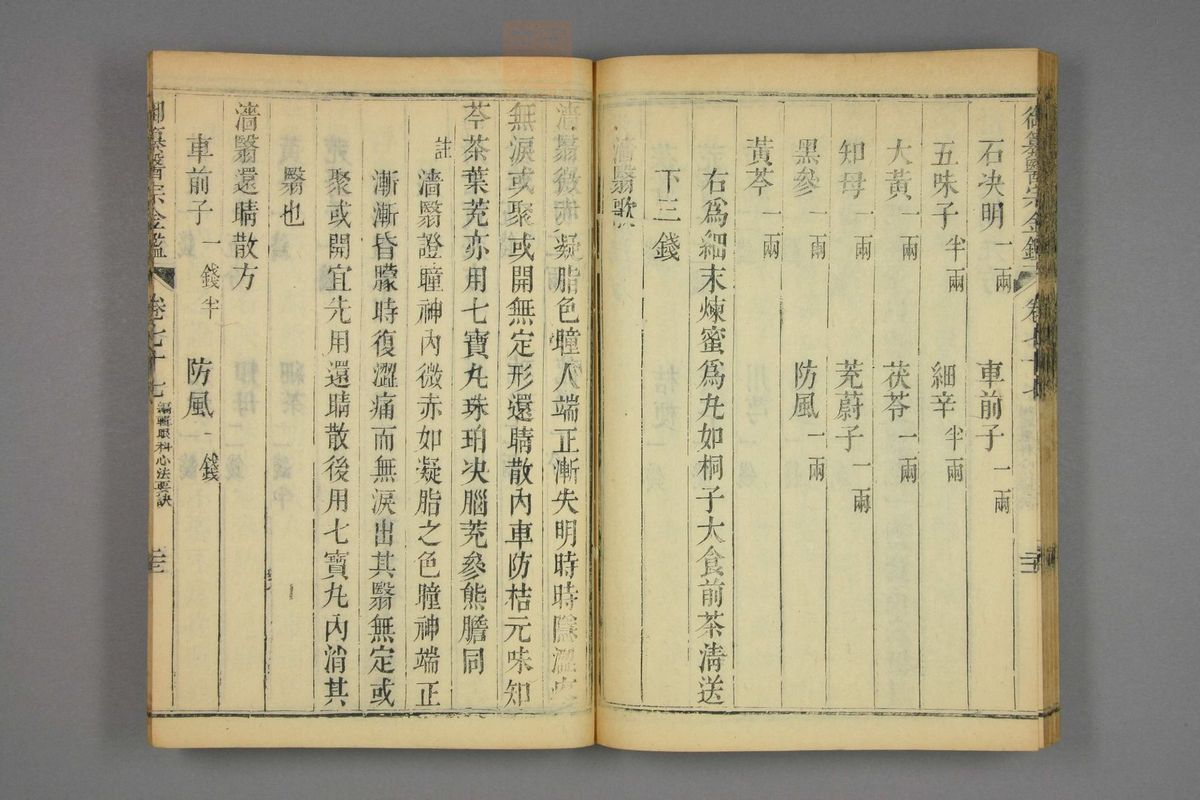 御纂醫宗金鑑 卷七十七
石决明一兩 車前子一兩
五味子半兩 細辛半兩
大黃一兩 茯苓一兩
知母一兩 茺蔚子一兩
黑參一兩 防風一兩
黃芩一兩
右爲細末煉蜜爲丸如桐子大食前茶淸送
下三錢
濇翳歌
濇翳微赤凝脂色瞳人端正漸失明時時隱澀
無淚或聚或開無定形還睛散內車防桔元味知
芩茶葉茺亦用七寶丸珠珀决腦茺參熊膽同
註
濇翳證瞳神內微赤如凝脂之色瞳神端正
漸漸昏朦時復澀痛而無淚出其翳無定或
聚或開宜先用還睛散後用七寶丸內消其
翳也
濇翳還睛散方
車前子一錢半 防風一錢
御纂醫宗金鑑 卷七十七 編輯眼科心法要訣